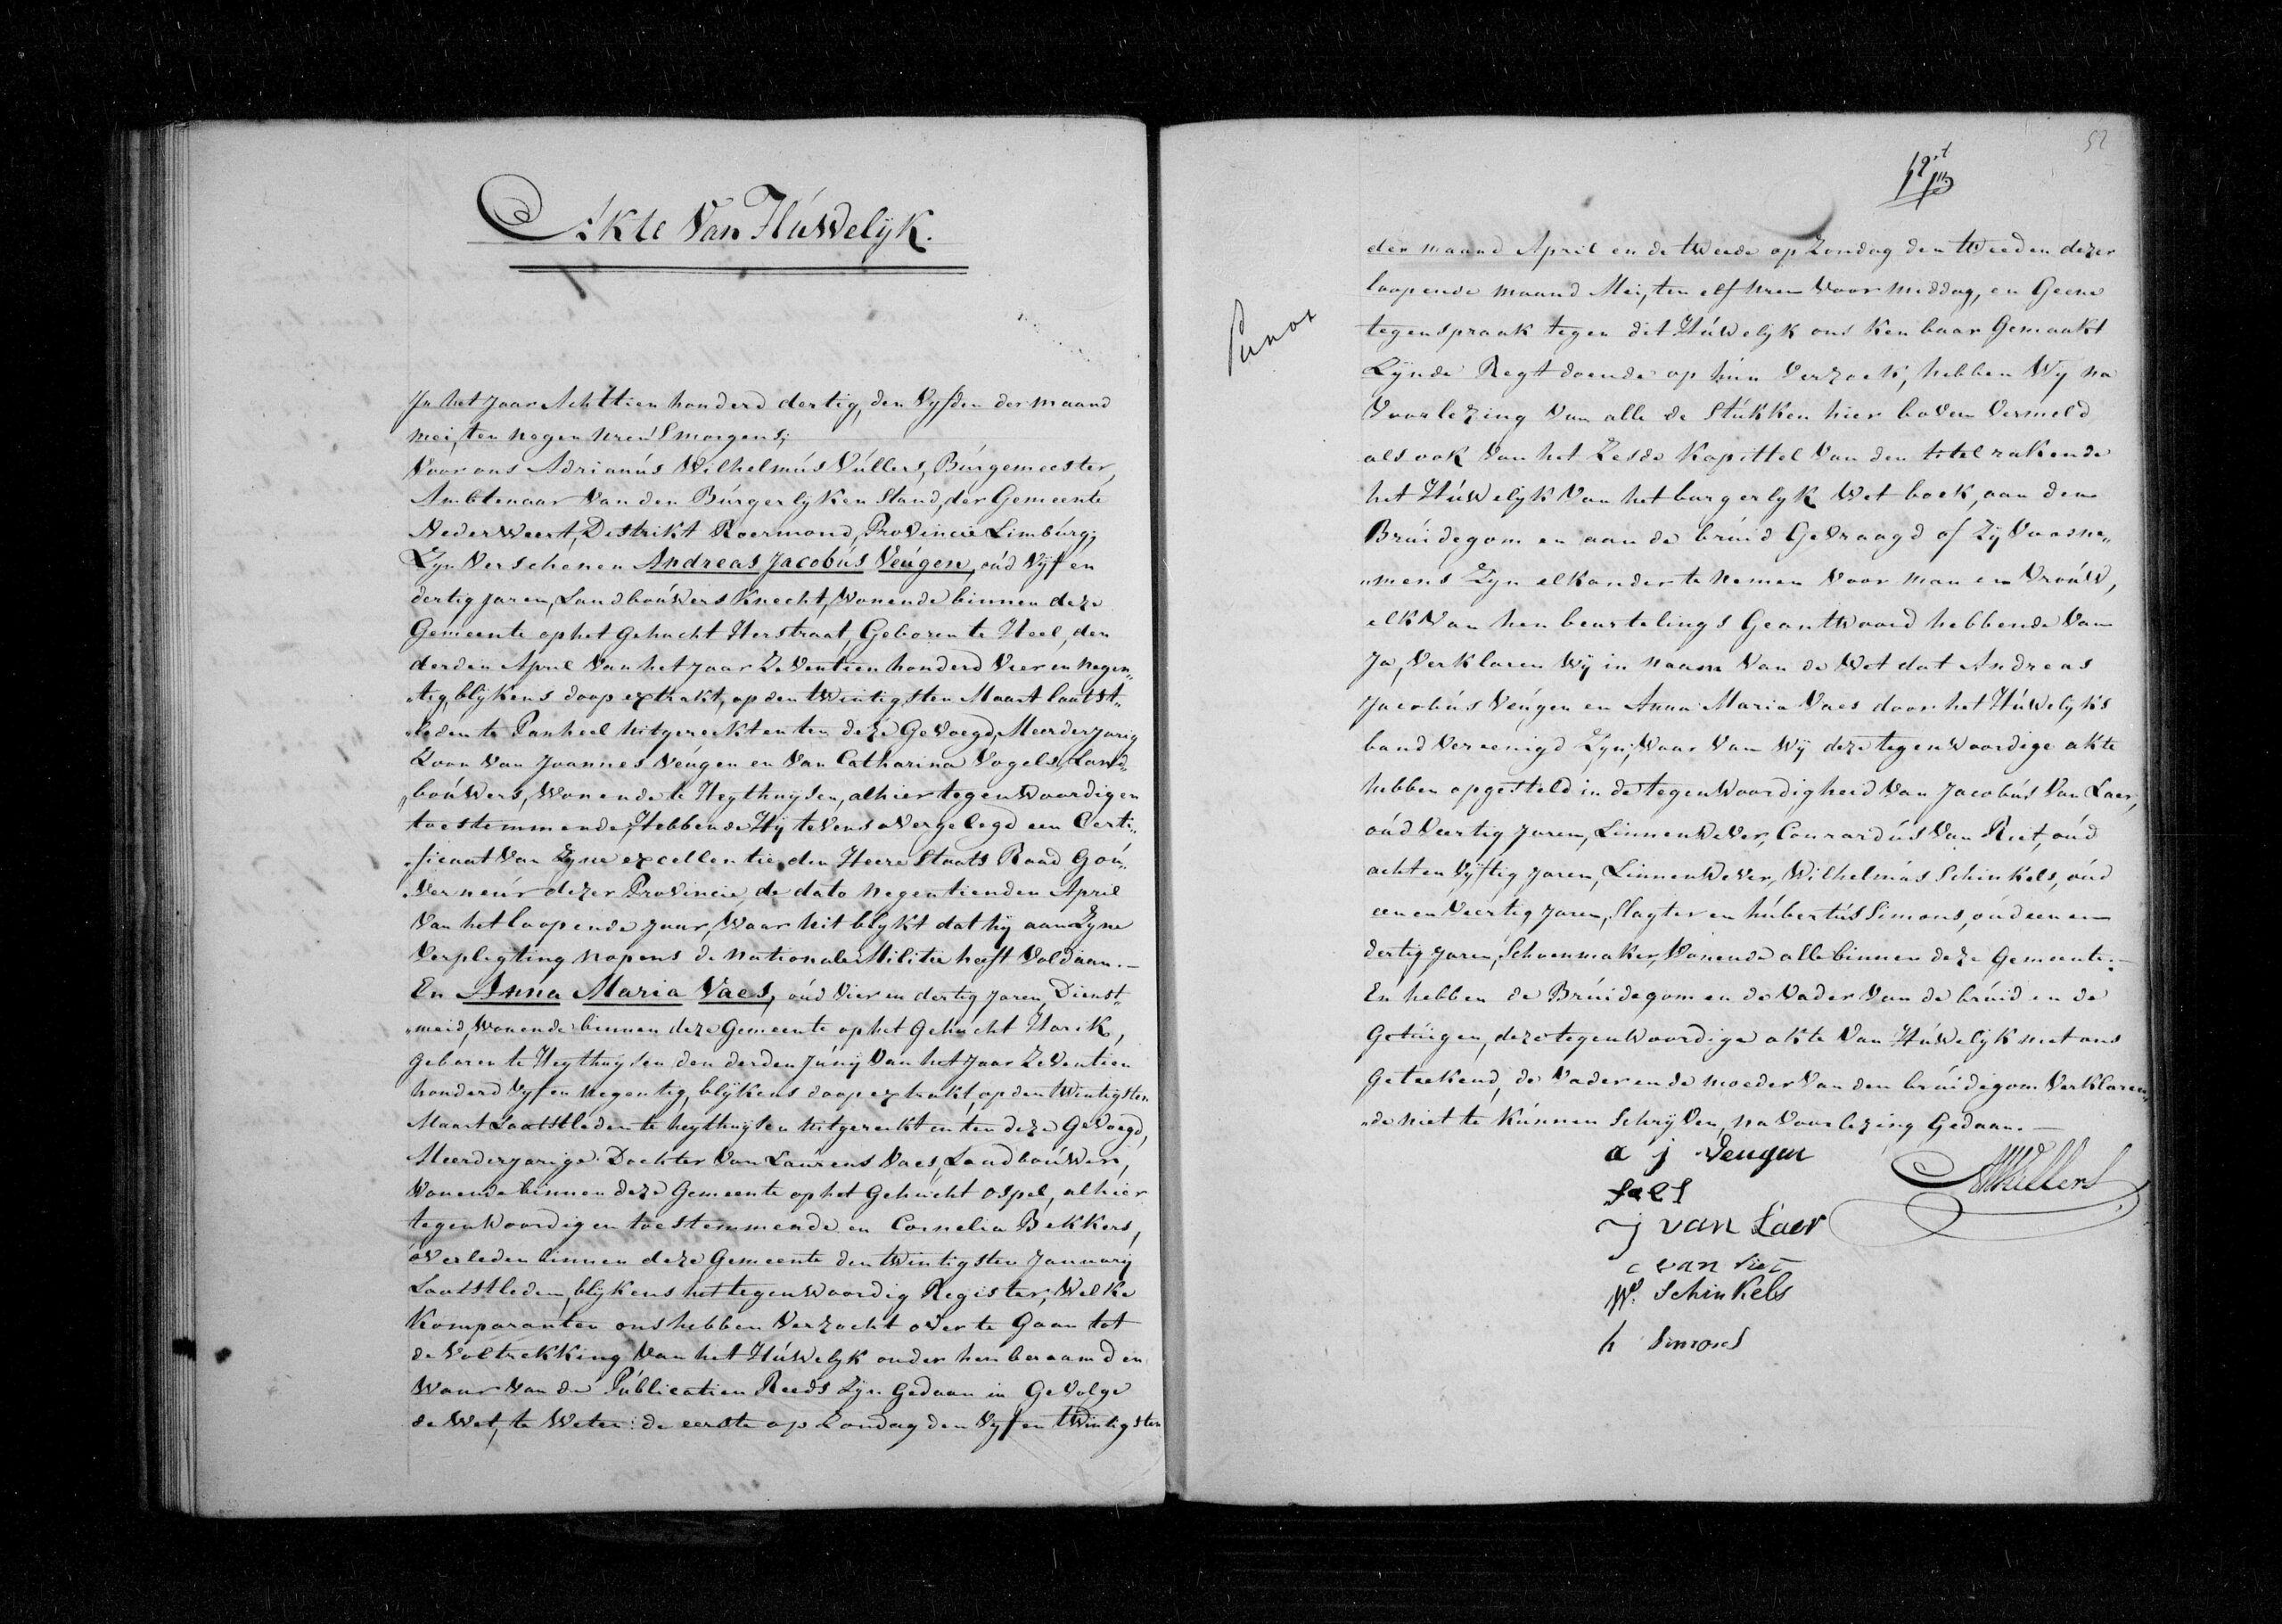 Akte Van Húwelyk.
In het Jaar Achttien honderd dertig, den Vyfden der maand
mei, ten negen uren Smorgens;
Voor ons Adrianús Wilhelmús Vúllers, Búrgemeester,
Ambtenaar Van den Búrgerlyken Stand, der Gemeente
Nederweert, Distrikt Roermond, Provincie Limbúrg;
Zyn Verschenen Andreas Jacobús Veúgen, oúd Vyf en
dertig jaren, Landboúwers Knecht, Wonende binnen deze
Gemeente op het Gehucht Herstraat, Geboren te Heel, den
derden April Van het Jaar Zeventien honderd Vier en negen„
„tig, blykens doop extrakt, op den twintigsten Maart laatst„
„leden te Panheel uitgereikt en ten deze Gevoegd, Meerderjarig
Zoon Van Joannes Veúgen en Van Catharina Vogels, Land„
„boúwers, Wonende te Heythuysen, alhier tegenwoordig en
toestemmende; Hebbende Hy tevens overgelegd een Certi„
„ficaat Van Zyne excellentie den Heere Staats Raad Goú„
„Verneúr dezer Provincie, de dato negentienden April
Van het loopende Jaar, Waar uit blykt dat hy aan Zyne
Verpligting nopens de nationale Militie heeft Voldaan.—
En Anna Maria Vaes, oúd Vier en dertig Jaren, Dienst„
„meid, Wonende binnen deze Gemeente op het Gehucht Horik,
geboren te Heythuysen den derden Júny Van het Jaar Zeventien
honderd Vyf en negentig, blykens doop extrakt op den twintigsten
Maart Laatstleden te heythuysen uitgereikt en ten deze Gevoegd,
Meerderjarige Dochter Van Laúrens Vaes, Landboúwer,
Wonende binnen deze Gemeente op het Gehúcht ospel, alhier
tegenwoordig en toestemmende en Cornelia Bekkers,
overleden binnen deze Gemeente den twintigsten January
Laatstleden, blykens het tegenwoordig Register, Welke
Komparanten ons hebben Verzocht over te Gaan tot
de Voltrekking Van het Húwelyk onder hen beraamd en
Waar Van de Públicatien Reeds Zyn Gedaan in Gevolge
de Wet, te Weten: de eerste op Zondag den Vyf en twintigsten
52
der maand April en de tweede op Zondag den tweeden dezer
loopende maand Mei, ten elf uren Voormiddag, en Geene
tegenspraak tegen dit Húwelyk ons Kenbaar Gemaakt
Zynde Regtdoende op hún Verzoek, hebben Wy na
Voorlezing Van alle de Stúkken hier boven Vermeld
als ook Van het Zesde Kapittel Van den titel rakende
het Húwelyk Van het burgerlyk Wetboek, aan den
Brúidegom en aan de brúid Gevraagd of Zy Voorne„
„mens Zyn elkander te nemen Voor man en Vroúw,
elk Van hen beurtelings Geantwoord hebbende Van
Ja, Verklaren Wy in naam Van de Wet dat Andreas
Jacobús Veúgen en Anna Maria Vaes door het Húwelyks
band Vereenigd Zyn; Waar Van Wy deze tegenwoordige akte
hebben opgesteld in de tegenwoordigheid Van Jacobús Van Laer,
oúd Veertig Jaren, Linnenwever, Conrardús Van Riet, oúd
acht en Vyftig Jaren, Linnenwever, Wilhelmús Schinkels, oúd
een en Veertig Jaren, Slagter en húbertús Simons, oúd een en
dertig Jaren, Schoenmaker, Wonende alle binnen deze Gemeente.—
En hebben de Brúidegom en de Vader Van de brúid en de
Getúigen, deze tegenwoordige akte Van Húwelyk met ons
Geteekend, de Vader en de moeder Van den brúidegom Verklaren„
„de niet te kúnnen Schryven, na Voorlezing Gedaan.—
a j Veugen
AWVullers
j van Laer
c van riet
W. Schinkels
h Simons